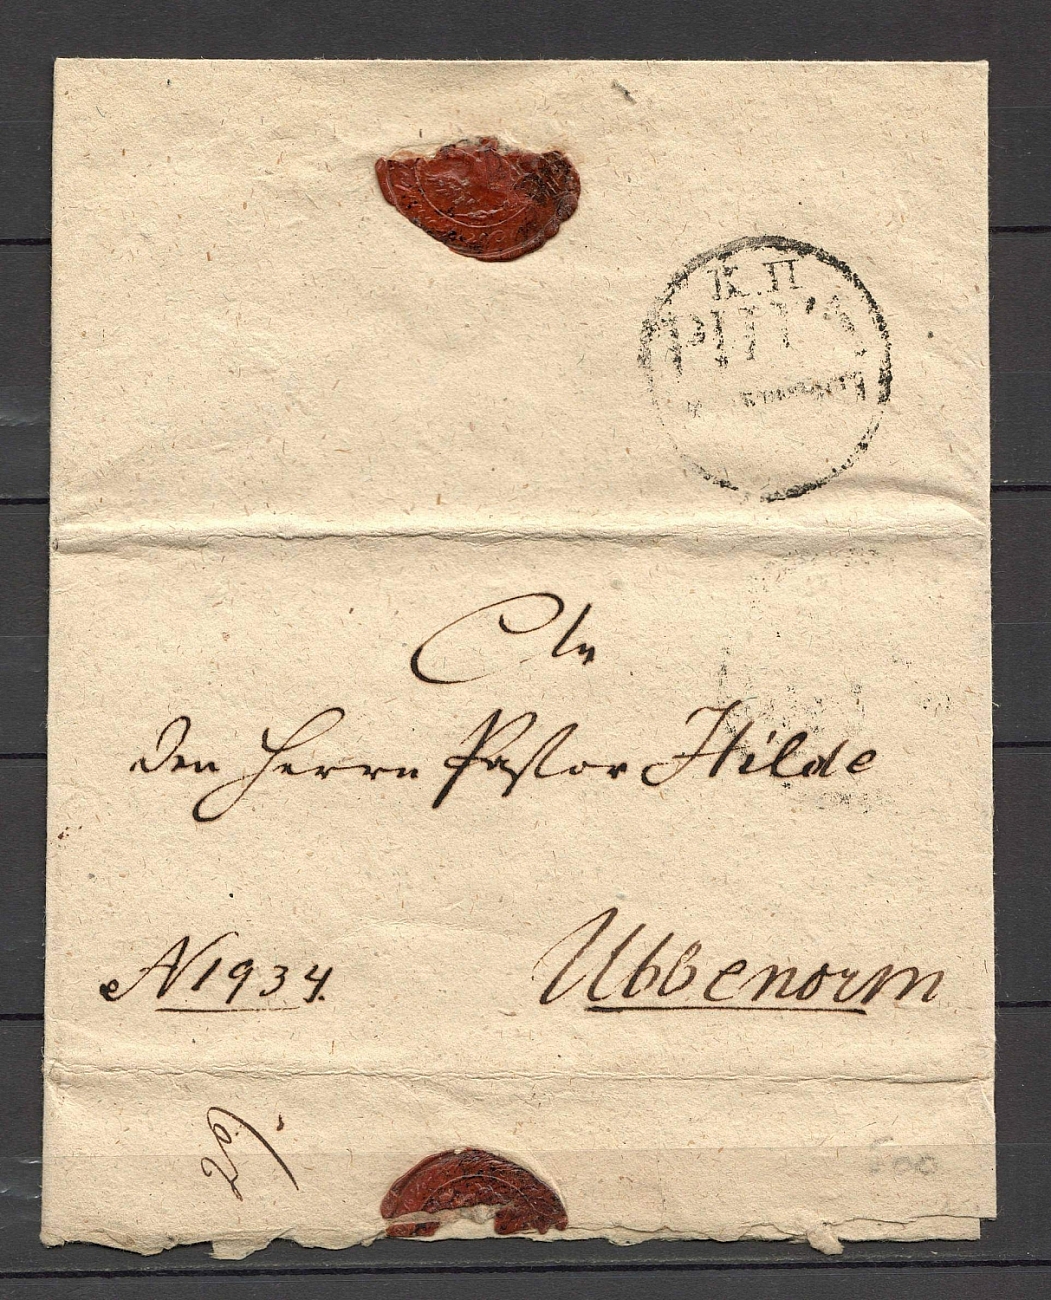 К. П.
РИГА
An
den Herrn Pastor Hilde
N 1934.
Ubbenorm
500